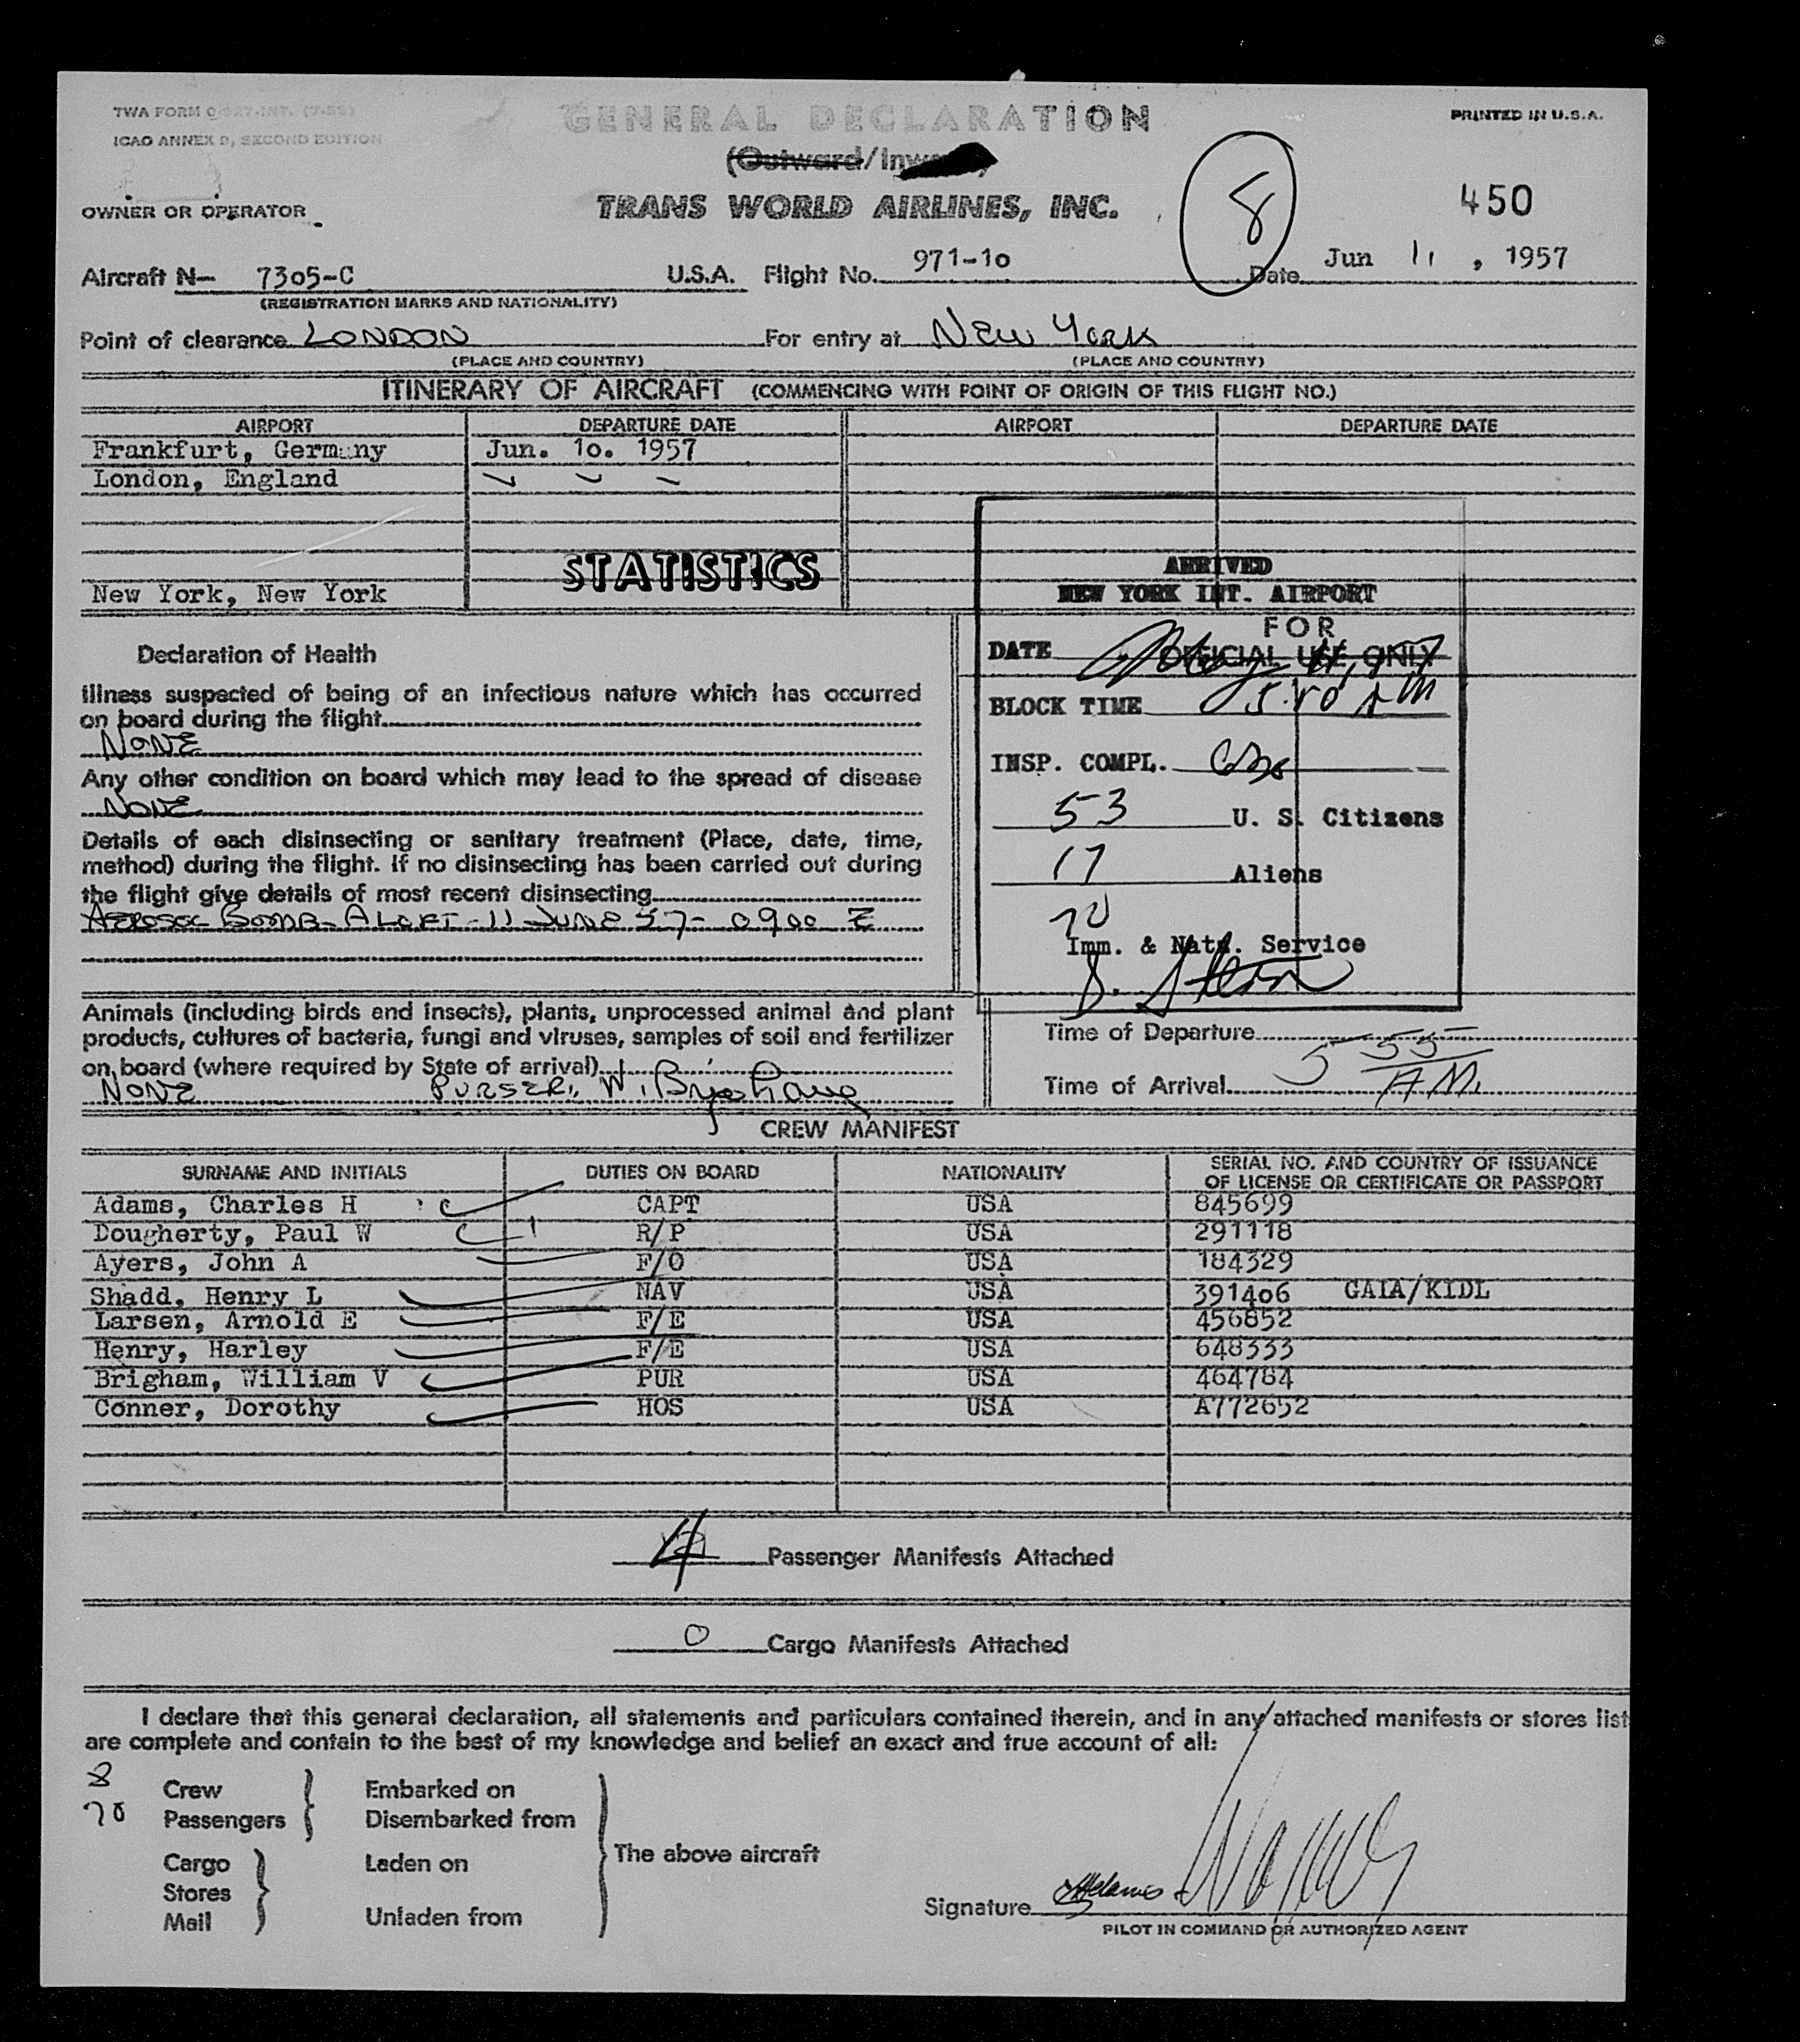 TWA FORM
ICAO ANNEX 9, SECOND EDITION
GENERAL DECLARATION
PRINTED IN U.S.A.
(Outward/Inward)
OWNER OR OPERATOR
TRANS WORLD AIRLINES, INC.
8
450
Aircraft N- 7305-C U.S.A. Flight No. 971-10 Date Jun 11, 1957
(REGISTRATION MARKS AND NATIONALITY)
Point of clearance LONDON For entry at New York
(PLACE AND COUNTRY) (PLACE AND COUNTRY)
ITINERARY OF AIRCRAFT (COMMENCING WITH POINT OF ORIGIN OF THIS FLIGHT NO.)
AIRPORT DEPARTURE DATE AIRPORT DEPARTURE DATE
Frankfurt, Germany Jun. 10. 1957
London, England
STATISTICS
New York, New York
ARRIVED
NEW YORK INT. AIRPORT
FOR
OFFICIAL USE ONLY
DATE
BLOCK TIME
INSP. COMPL.
53 U. S. Citizens
17 Aliens
70
Imm. & Natz. Service
Declaration of Health
Illness suspected of being of an infectious nature which has occurred
on board during the flight
NONE
Any other condition on board which may lead to the spread of disease
NONE
Details of each disinsecting or sanitary treatment (Place, date, time,
method) during the flight. If no disinsecting has been carried out during
the flight give details of most recent disinsecting
AEROSOL BOMB - ALOFT - 11 JUNE 57 - 0900 Z
Animals (including birds and insects), plants, unprocessed animal and plant
products, cultures of bacteria, fungi and viruses, samples of soil and fertilizer
on board (where required by State of arrival)
NONE PURSER: W. Brigham
Time of Departure
Time of Arrival 5 55 AM.
CREW MANIFEST
SURNAME AND INITIALS DUTIES ON BOARD NATIONALITY SERIAL NO. AND COUNTRY OF ISSUANCE
OF LICENSE OR CERTIFICATE OR PASSPORT
Adams, Charles H CAPT USA 845699
Dougherty, Paul W R/P USA 291118
Ayers, John A F/O USA 184329
Shadd, Henry L NAV USA 391406 GAIA/KIDL
Larsen, Arnold E F/E USA 456852
Henry, Harley F/E USA 648333
Brigham, William V PUR USA 464784
Conner, Dorothy HOS USA A772652
4 Passenger Manifests Attached
0 Cargo Manifests Attached
I declare that this general declaration, all statements and particulars contained therein, and in any attached manifests or stores list
are complete and contain to the best of my knowledge and belief an exact and true account of all:
8 Crew Embarked on
70 Passengers Disembarked from
The above aircraft
Cargo Laden on
Stores
Mail Unladen from
Signature
PILOT IN COMMAND OR AUTHORIZED AGENT